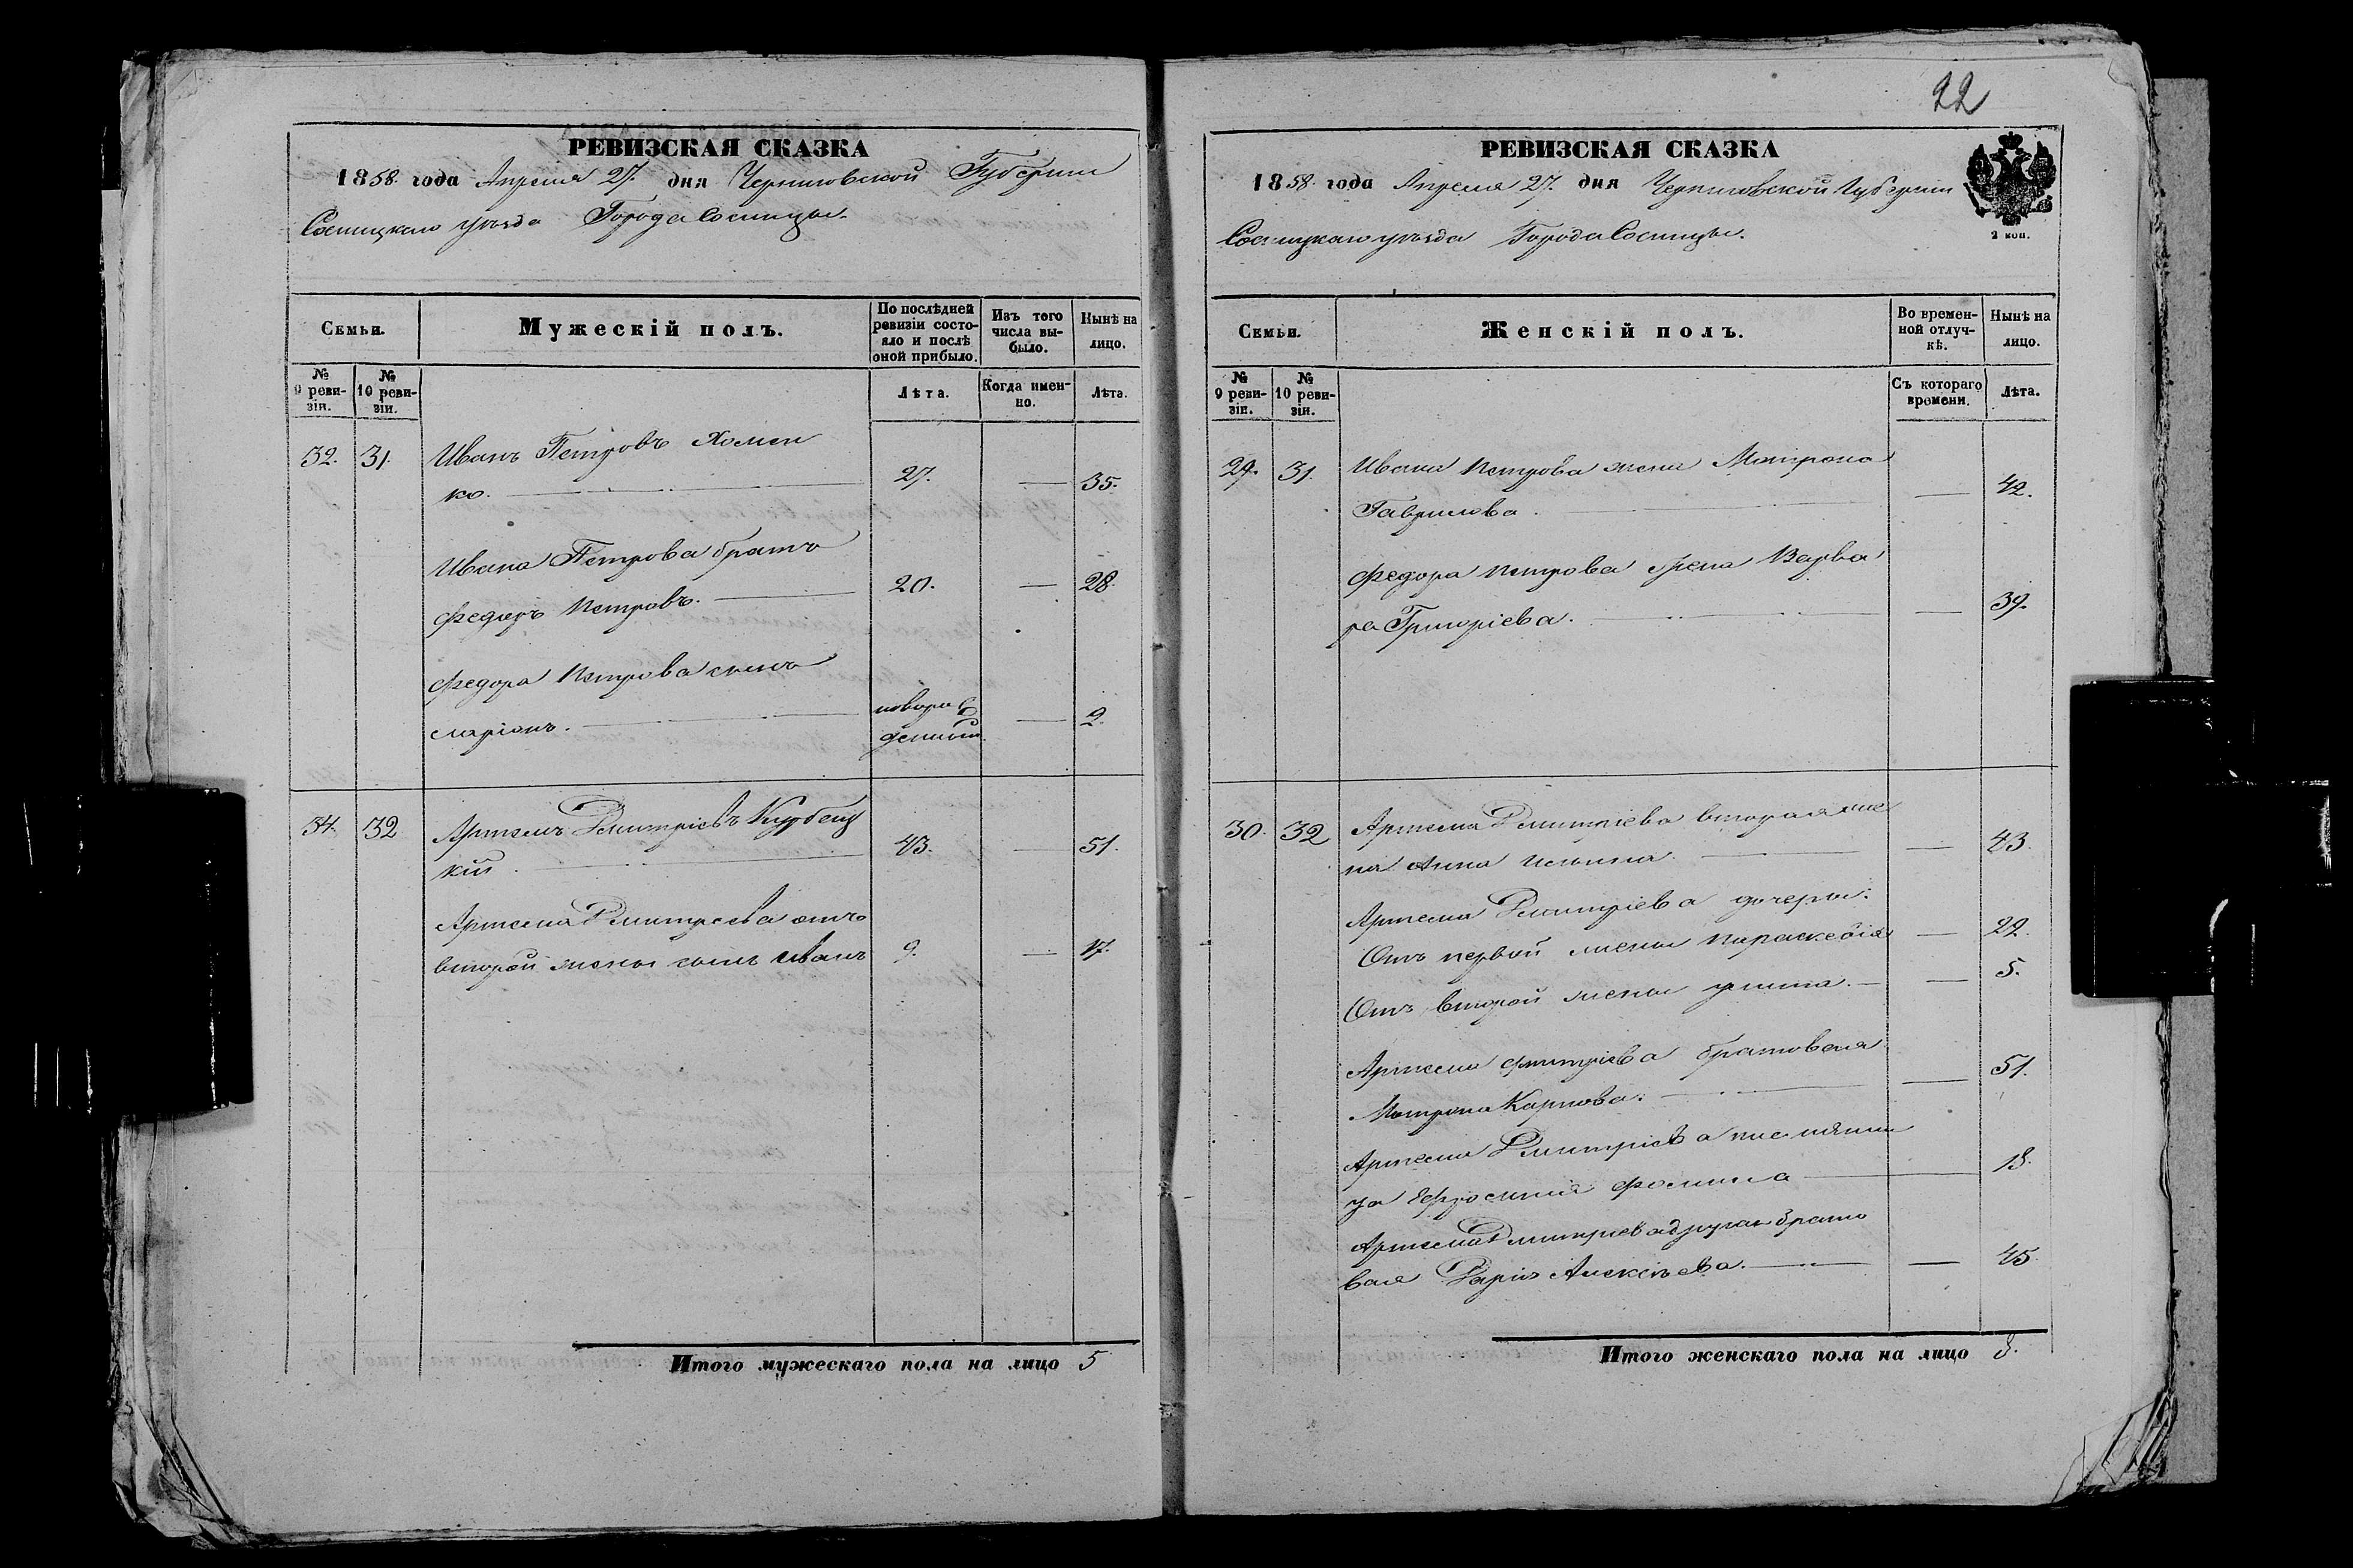 22
РЕВИЗСКАЯ СКАЗКА
1858. года Апреля 27. дня Черниговской Губернии
Сосницкаго уѣзда Города Сосницы.
Семьи.
Мужескій полъ.
По послѣдней ревизіи состояло и послѣ оной прибыло.
Изъ того числа выбыло.
Нынѣ на лицо.
№ 9 ревизіи.
№ 10 ревизіи.
Лѣта.
Когда именно.
Лѣта.
32. 31. Иванъ Петровъ Хомен
ко. 27. — 35.
Ивана Петрова братъ
Федоръ Петровъ. 20. — 28.
Федора Петрова сынъ
новорож
денный — 2.
34. 32 Артемъ Дмитріевъ
кій. 43. — 51.
Артема Дмитріева отъ
второй жены сынъ Иванъ 9. — 17.
Итого мужескаго пола на лицо 5
РЕВИЗСКАЯ СКАЗКА
1858. года Апреля 27. дня Черниговской Губернии
Сосницкаго уѣзда Города Сосницы.
2 коп.
Семьи.
Женскій полъ.
Во временной отлучкѣ.
Нынѣ на лицо.
№ 9 ревизіи.
№ 10 ревизіи.
Съ котораго времени.
Лѣта.
29. 31. Ивана Петрова жена Матрона
Гаврилова. — 42.
Федора Петрова жена Варва
ра Григоріева. — 39.
30. 32 Артема Дмитріева вторая же
на Анна Ильина. — 43.
Артема Дмитріева дочеры:
Отъ первой жены Параскевія — 22.
Отъ второй жены — 5.
Артема Дмитріева братовая
Матрона Карпова. — 51.
Артема Дмитріева племянни
ца Ефросинія Фомина — 18.
Артема Дмитріева другая брато
вая Дарія Алексѣева. — 45.
Итого женскаго пола на лицо 8.